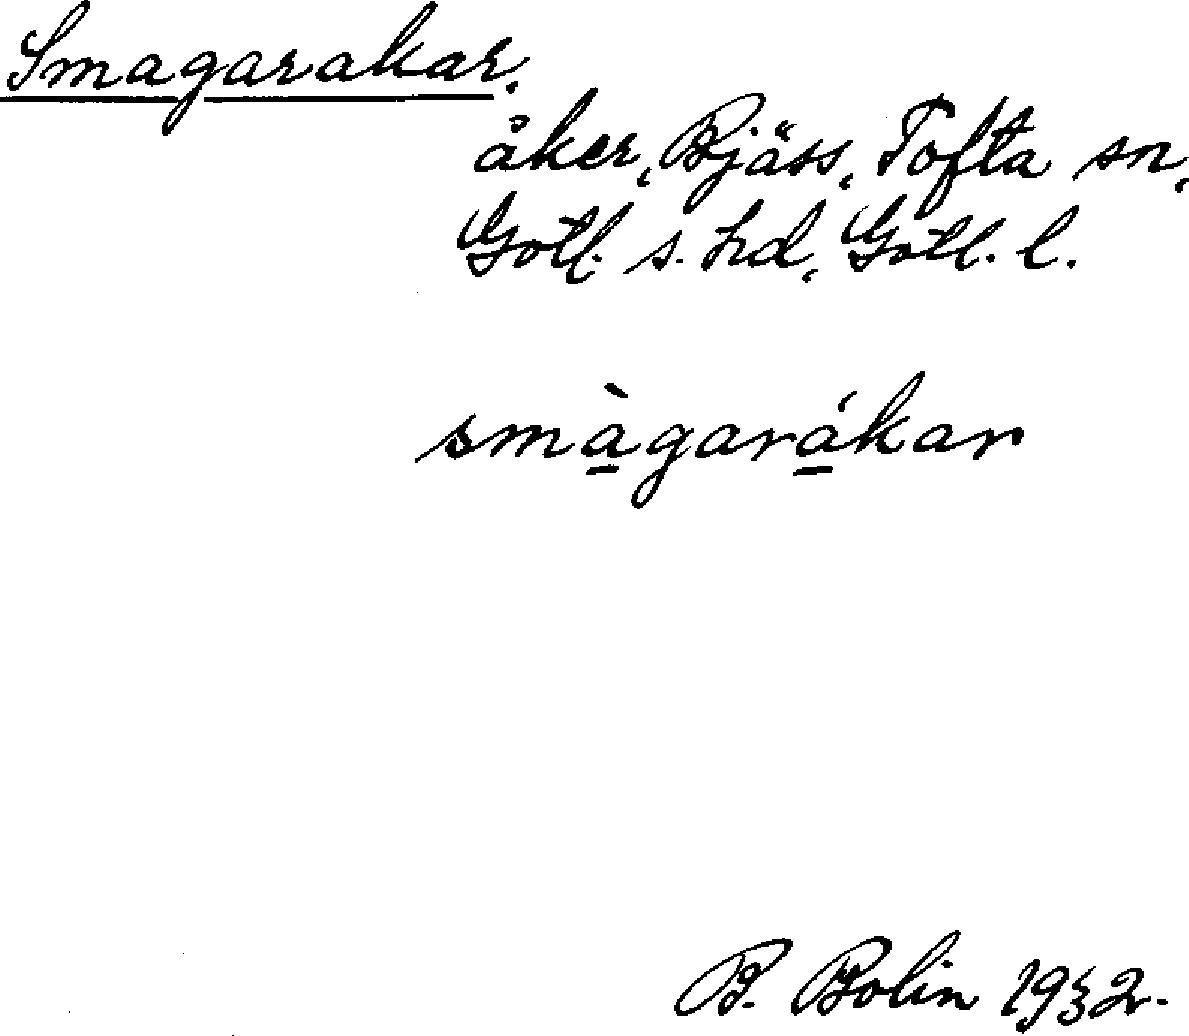 Smagarakar.
åker, Bjäss, Tofta sn,
Gotl. s. hd, Gotl. l.
smà̱gará̱kar
B. Bolin 1932.